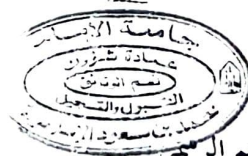 جامعة الإمام
عمادة شؤون
قسم الوثائق
القبول والتسجيل
محمد بن سعود الإسلامية